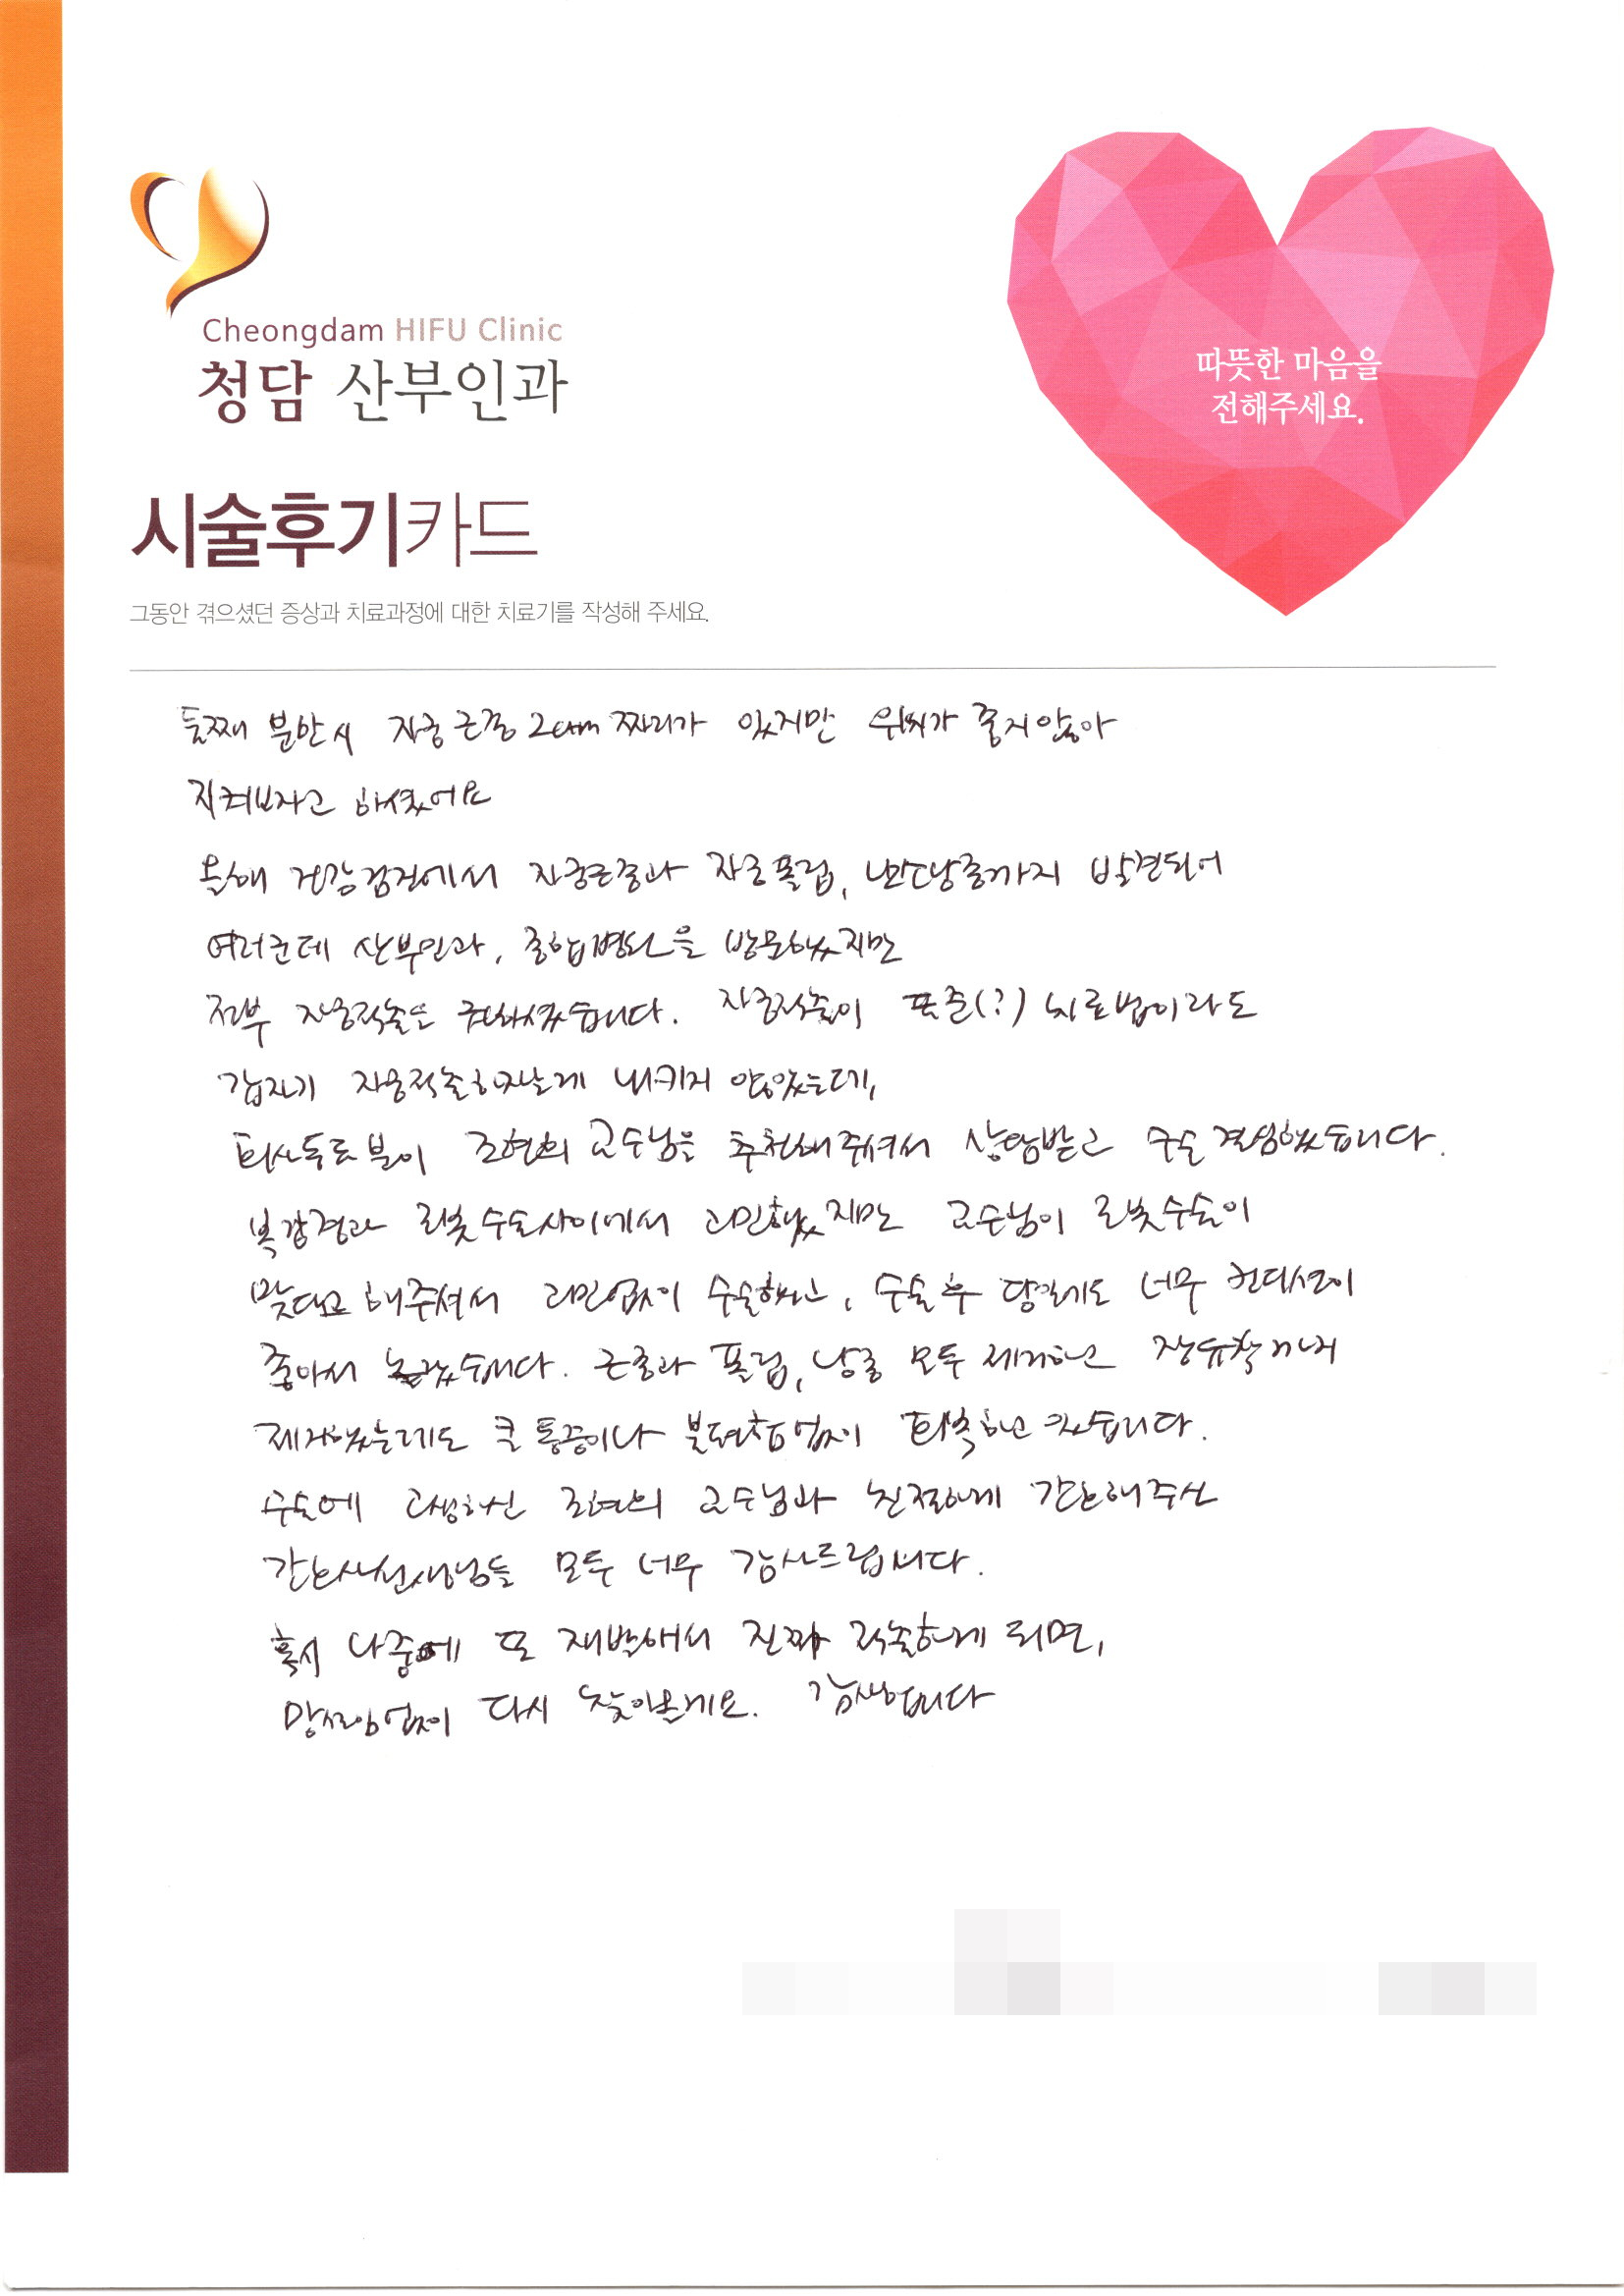 Cheongdam HIFU Clinic
청담 산부인과
따뜻한 마음을
전해주세요.
시술후기카드
그동안 겪으셨던 증상과 치료과정에 대한 치료기를 작성해 주세요.
둘째 분만시 자궁근종 2cm 짜리가 있지만 위치가 좋지않아
지켜보자고 하셨어요
올해 건강검진에서 자궁근종과 자궁폴립, 난소낭종까지 발견되어
여러군데 산부인과, 종합병원을 방문했지만
전부 자궁적출을 권하셨습니다. 자궁적출이 표준(?) 치료법이라도
갑자기 자궁적출하자는게 내키지 않았는데,
회사동료분이 조현희 교수님을 추천해주셔서 상담받고 수술결심했습니다.
복강경과 로봇수술사이에서 고민했지만 교수님이 로봇수술이
맞다고 해주셔서 고민없이 수술했고, 수술후 당일에도 너무 컨디션이
좋아서 놀랐습니다. 근종과 폴립, 낭종 모두 제거하고 장유착까지
제거했는데도 큰 통증이나 불편함없이 회복하고 갑니다.
수술에 고생하신 조현희 교수님과 친절하게 간호해주신
간호사선생님들 모두 너무 감사드립니다.
혹시 나중에 또 재발해서 진짜 적출하게 되면,
망설임없이 다시 찾아올게요. 감사합니다